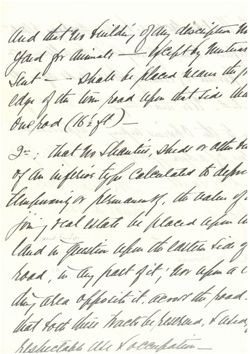 and that no building of any discription no
Yard for animals — except by mutual
Sent — shall be placed nears the
edge of the town road upon that side than
one rod (16½ ft) —
3d: that no Shanties, sheds or other
of an inferior type calculated to
temporarily or permanently, the value of
real estate be placed upon
land in question upon the eastern side of
road, in any part of it, nor upon a
any area opposite it, across the road
that both these tracts be reserved, & used,
respectable use & occupation —